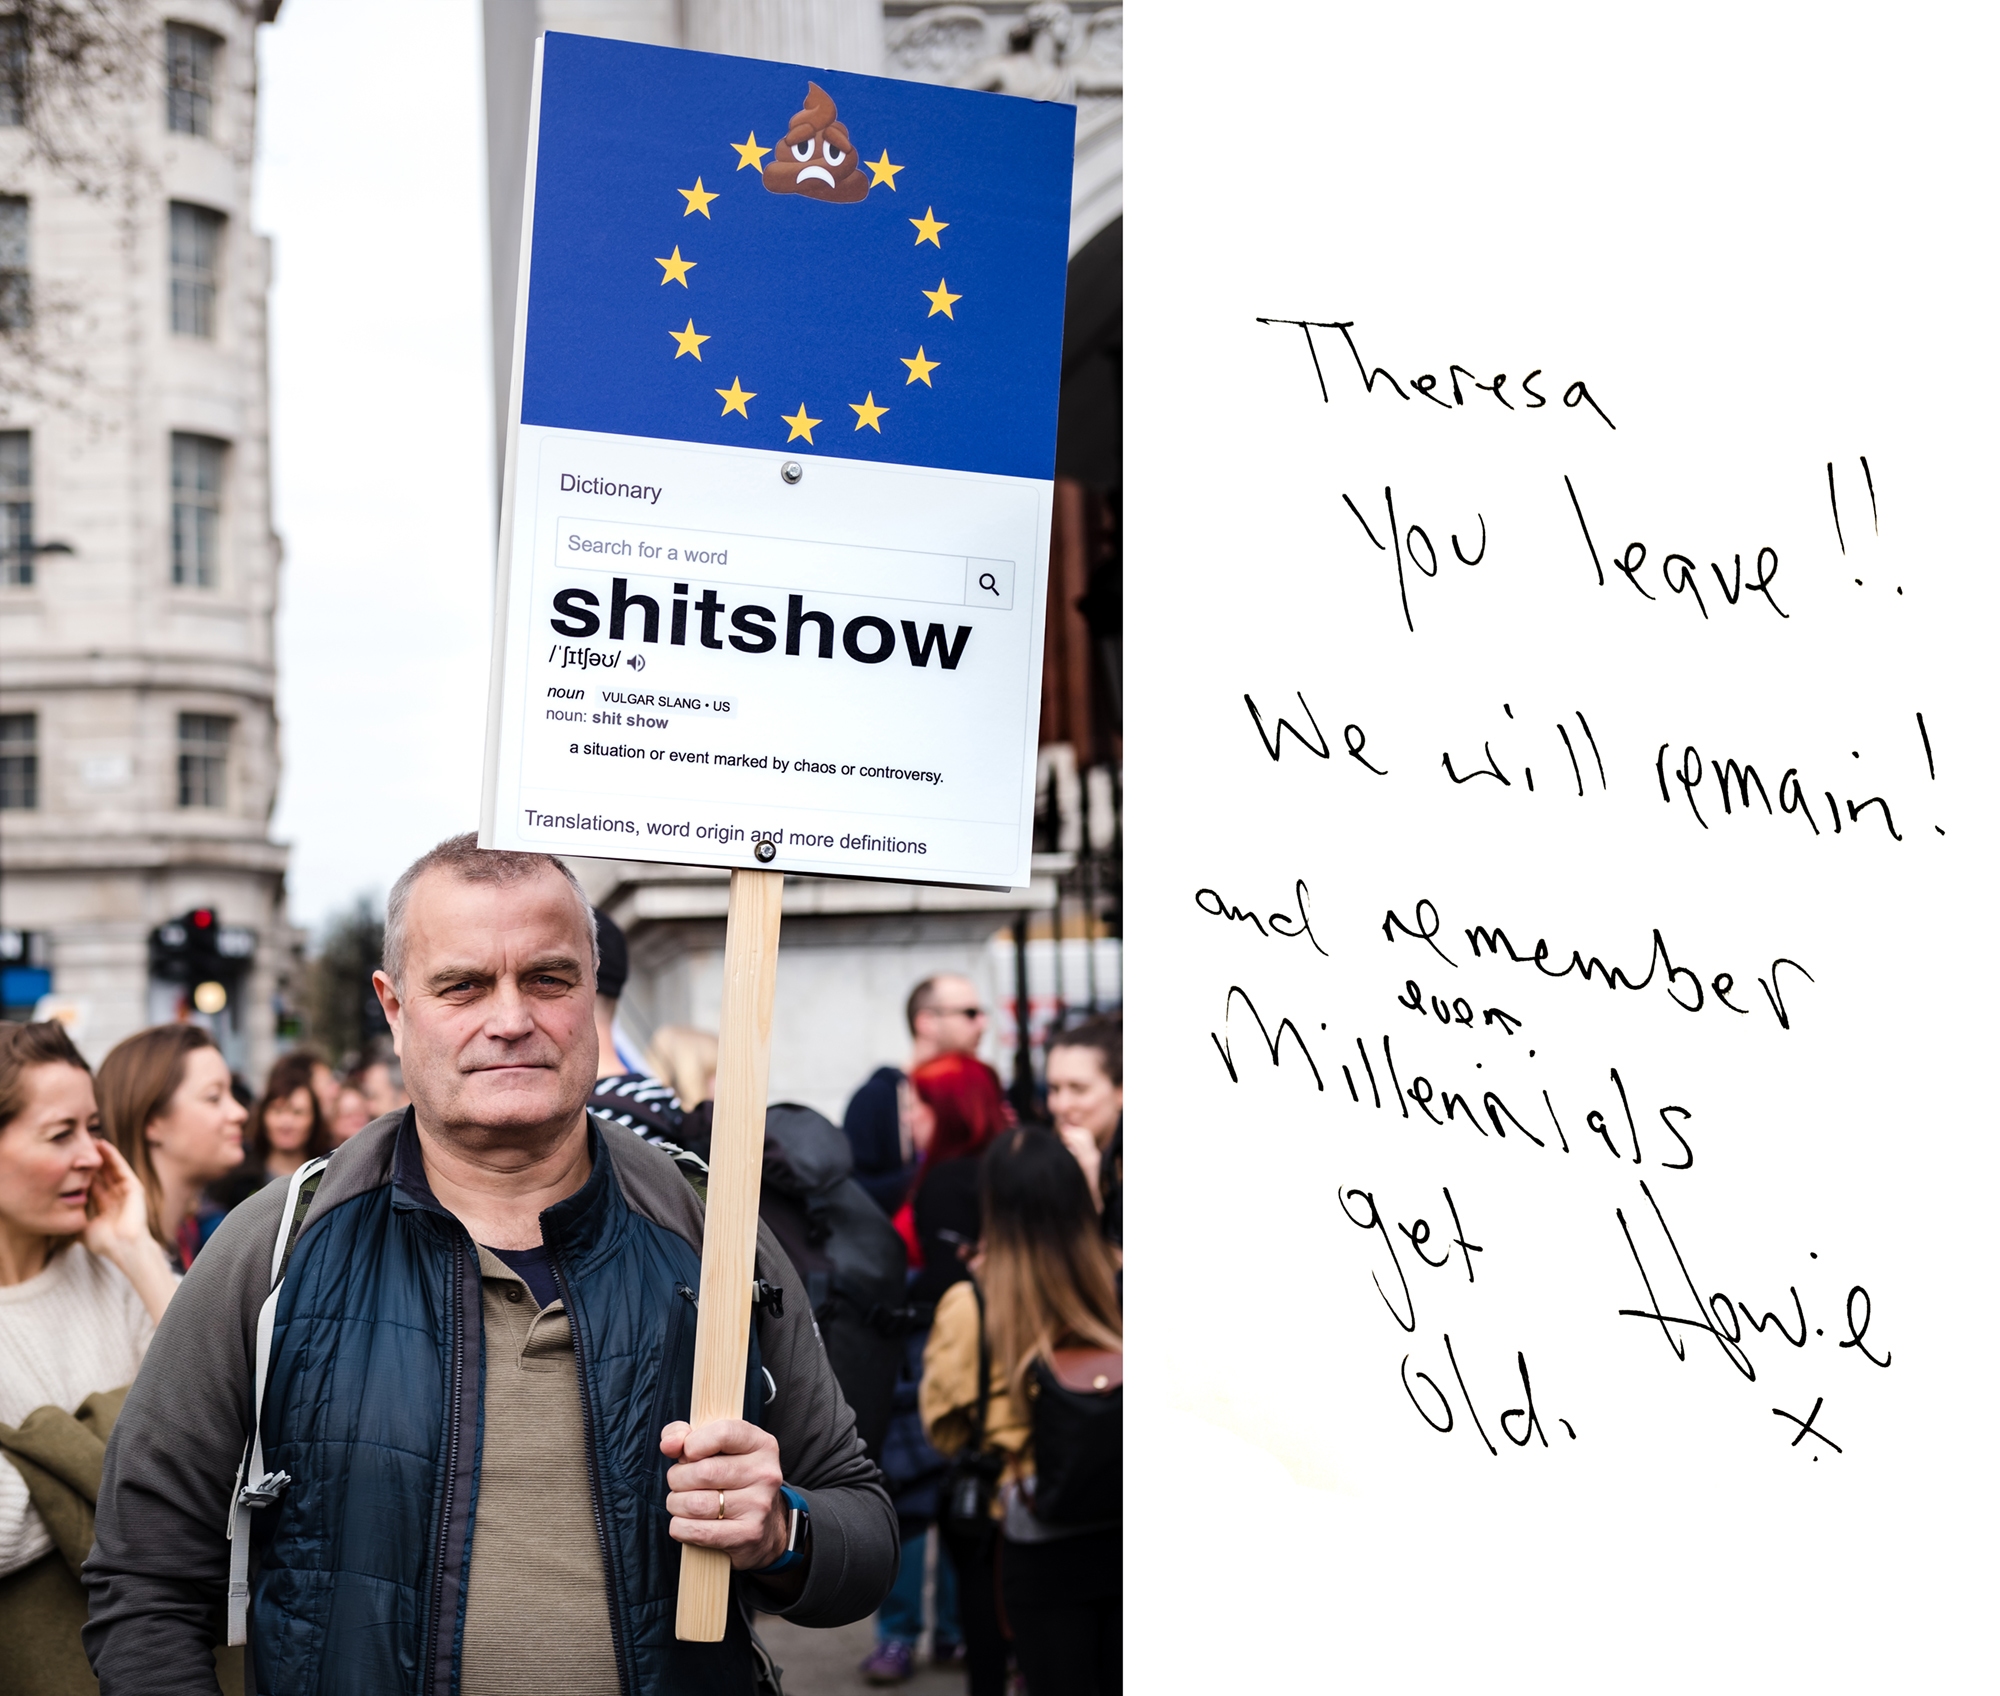 Dictionary
Search for a word
shitshow
/ˈʃɪtʃəʊ/
noun VULGAR SLANG • US
noun: shit show
a situation or event marked by chaos or controversy.
Translations, word origin and more definitions
Theresa
You leave!!
We will remain!
and remember
even
Millennials
get
old.
Howie
x